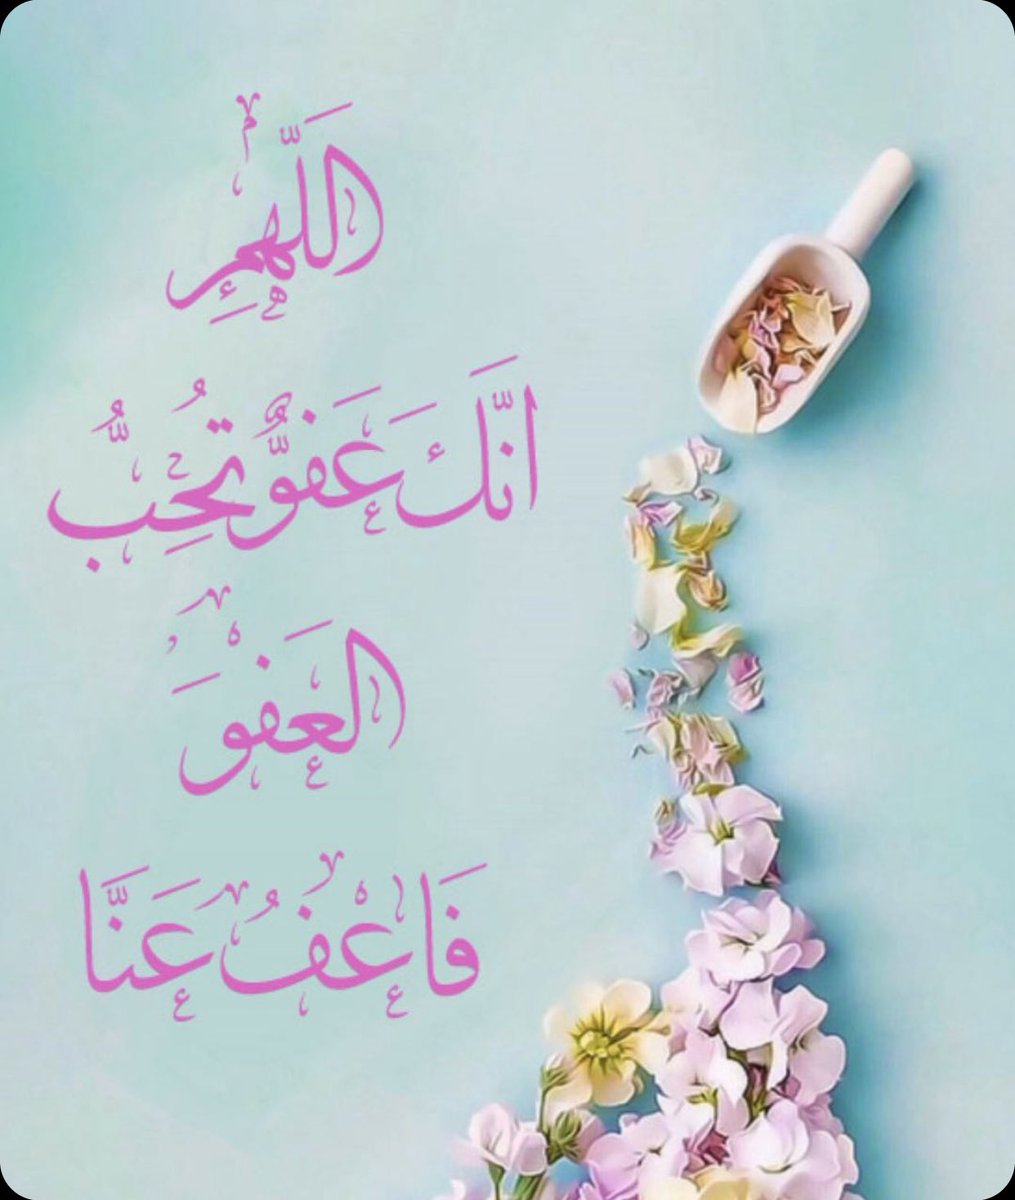 اَللّٰهُمَّ
اِنَّكَ عَفُوٌّ تُحِبُّ
الْعَفْوَ
فَاعْفُ عَنَّا